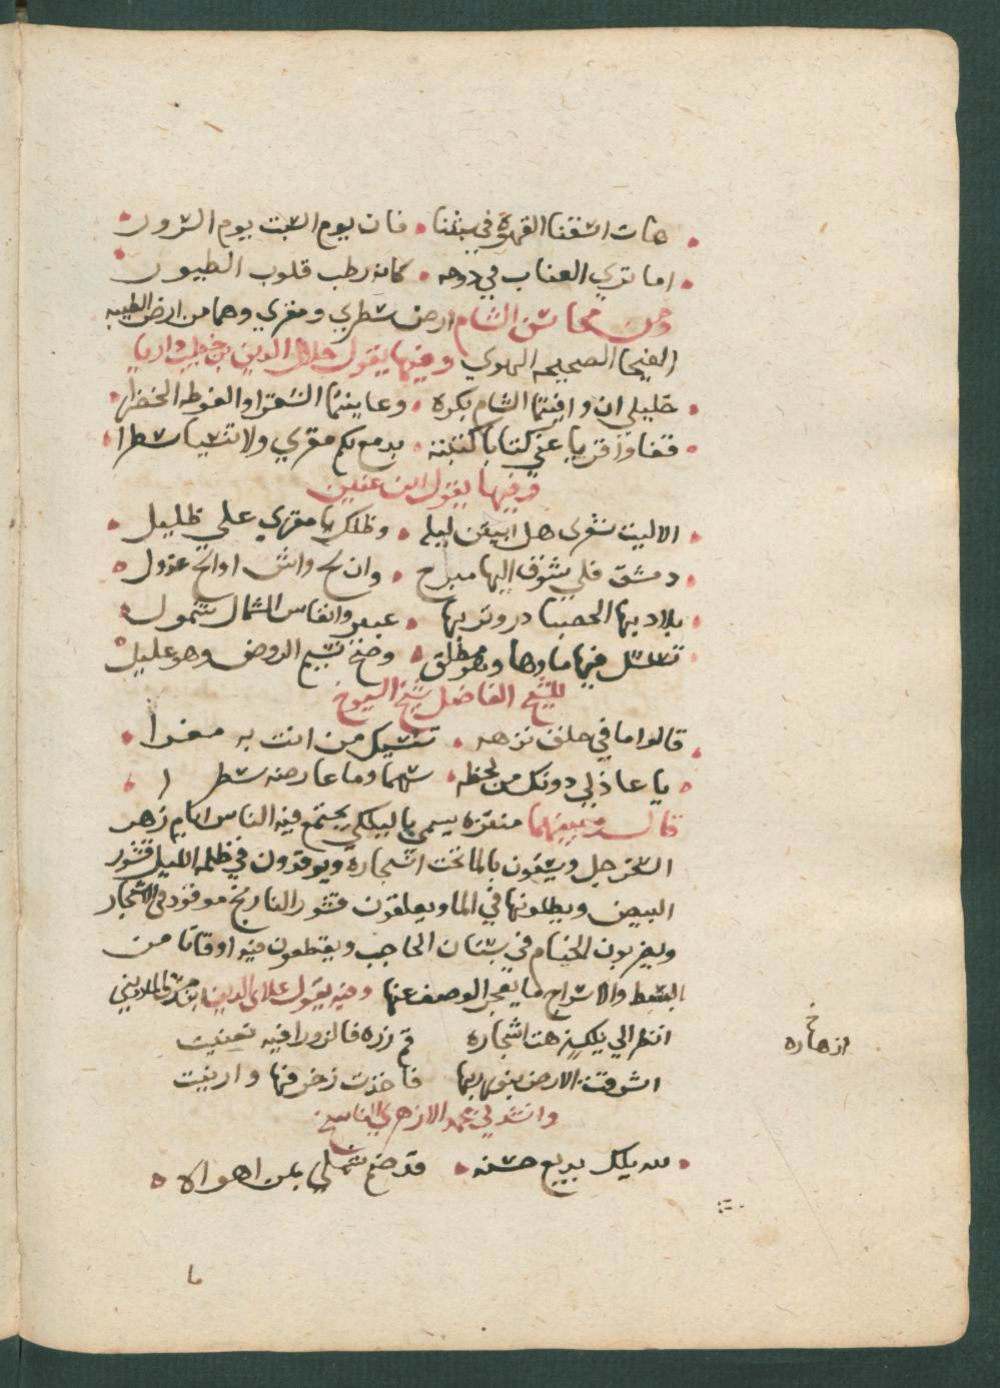 هات اسقنا القهوة في بيتنا • فان يوم السبت يوم السرور
اما تري العناب في دوحه • كانه رطب قلوب الطيور
ومن محاسن الشام ارض سطري ومقري وهما من ارض الطيبه
الفيحا الصحيحه الهوي وفيها يقول جلال الدين بن خطيب داريا
خليلي ان وافيتما الشام بكرة • وعاينتما الشقرا والغوطه الخضرا
قفا واقريا عني كتابا كتبته • بدمع لكم مقري ولا تنسيا سطرا
وفيها يقول ابن عنين
الا ليت شعري هل ابيتن ليله • وظلك يا مقري علي ظليل
دمشق فلي شوق اليها مبرح • وان لج واش او الح عذول
بلاد بها الحصبا در وتربها • عبير وانفاس الشمال شمول
تسلسل فيها ماوها وهو مطلق • وصح نسيم الروض وهو عليل
للشيخ الفاضل شيخ الشيوخ
قالوا ما في جلق نزهه • تنسيك من انت به مغرا
يا عاذلي دونك من لحظه • سهما وما عارضه سطرا
قال وبينهما منتزه يسمي باليلكي يجتمع فيه الناس ايام زهر
السفرجل ويسقون بالما تحت اشجاره ويوقدون في ظلمه الليل قشور
البيض ويطلونها في الما ويعلقون قشور النارنج موقود في الاشجار
ويضربون الخيام في بستان الحاجب ويقطعون فيه اوقاتا من
البسط والانشراح ما يعجز الوصف عنها وفيه يقول علاي الدين ابن شرف المارديني
انظر الي يلكي زهت اشجاره قم زره فالزور افيه تعنيت
ازهاره خ
اشرقت الارض بنور ربها فاخذت زخرفها وازينت
وانشدني محمد الازهري
لله يلك بديع حسنه • قد ضم شملي بمن اهواه
ما